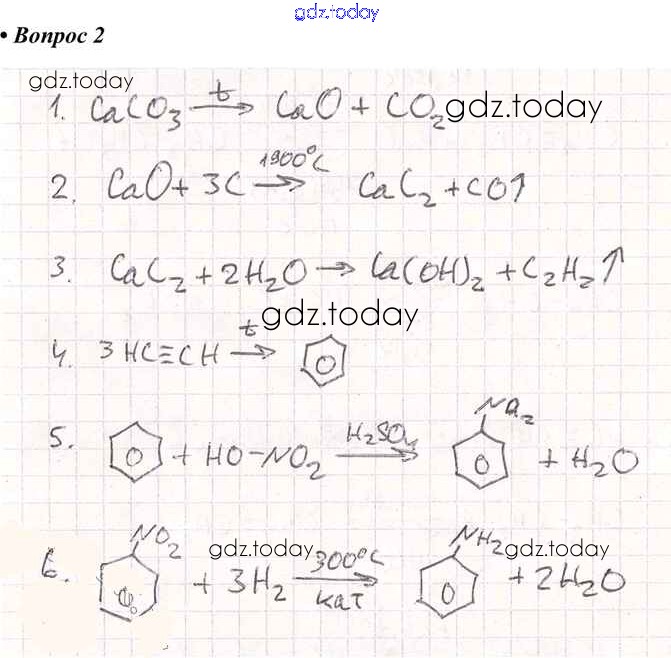 gdz.today
• Вопрос 2
gdz.today
1. CaCO₃ —t→ CaO + CO₂ gdz.today
2. CaO + 3C —1900°C→ CaC₂ + CO↑
3. CaC₂ + 2H₂O → Ca(OH)₂ + C₂H₂↑
gdz.today
4. 3HC≡CH —t→
5. + HO-NO₂ —H₂SO₄→ NO₂ + H₂O
6. NO₂ + 3H₂ —300°C кат→ NH₂ + 2H₂O
gdz.today gdz.today